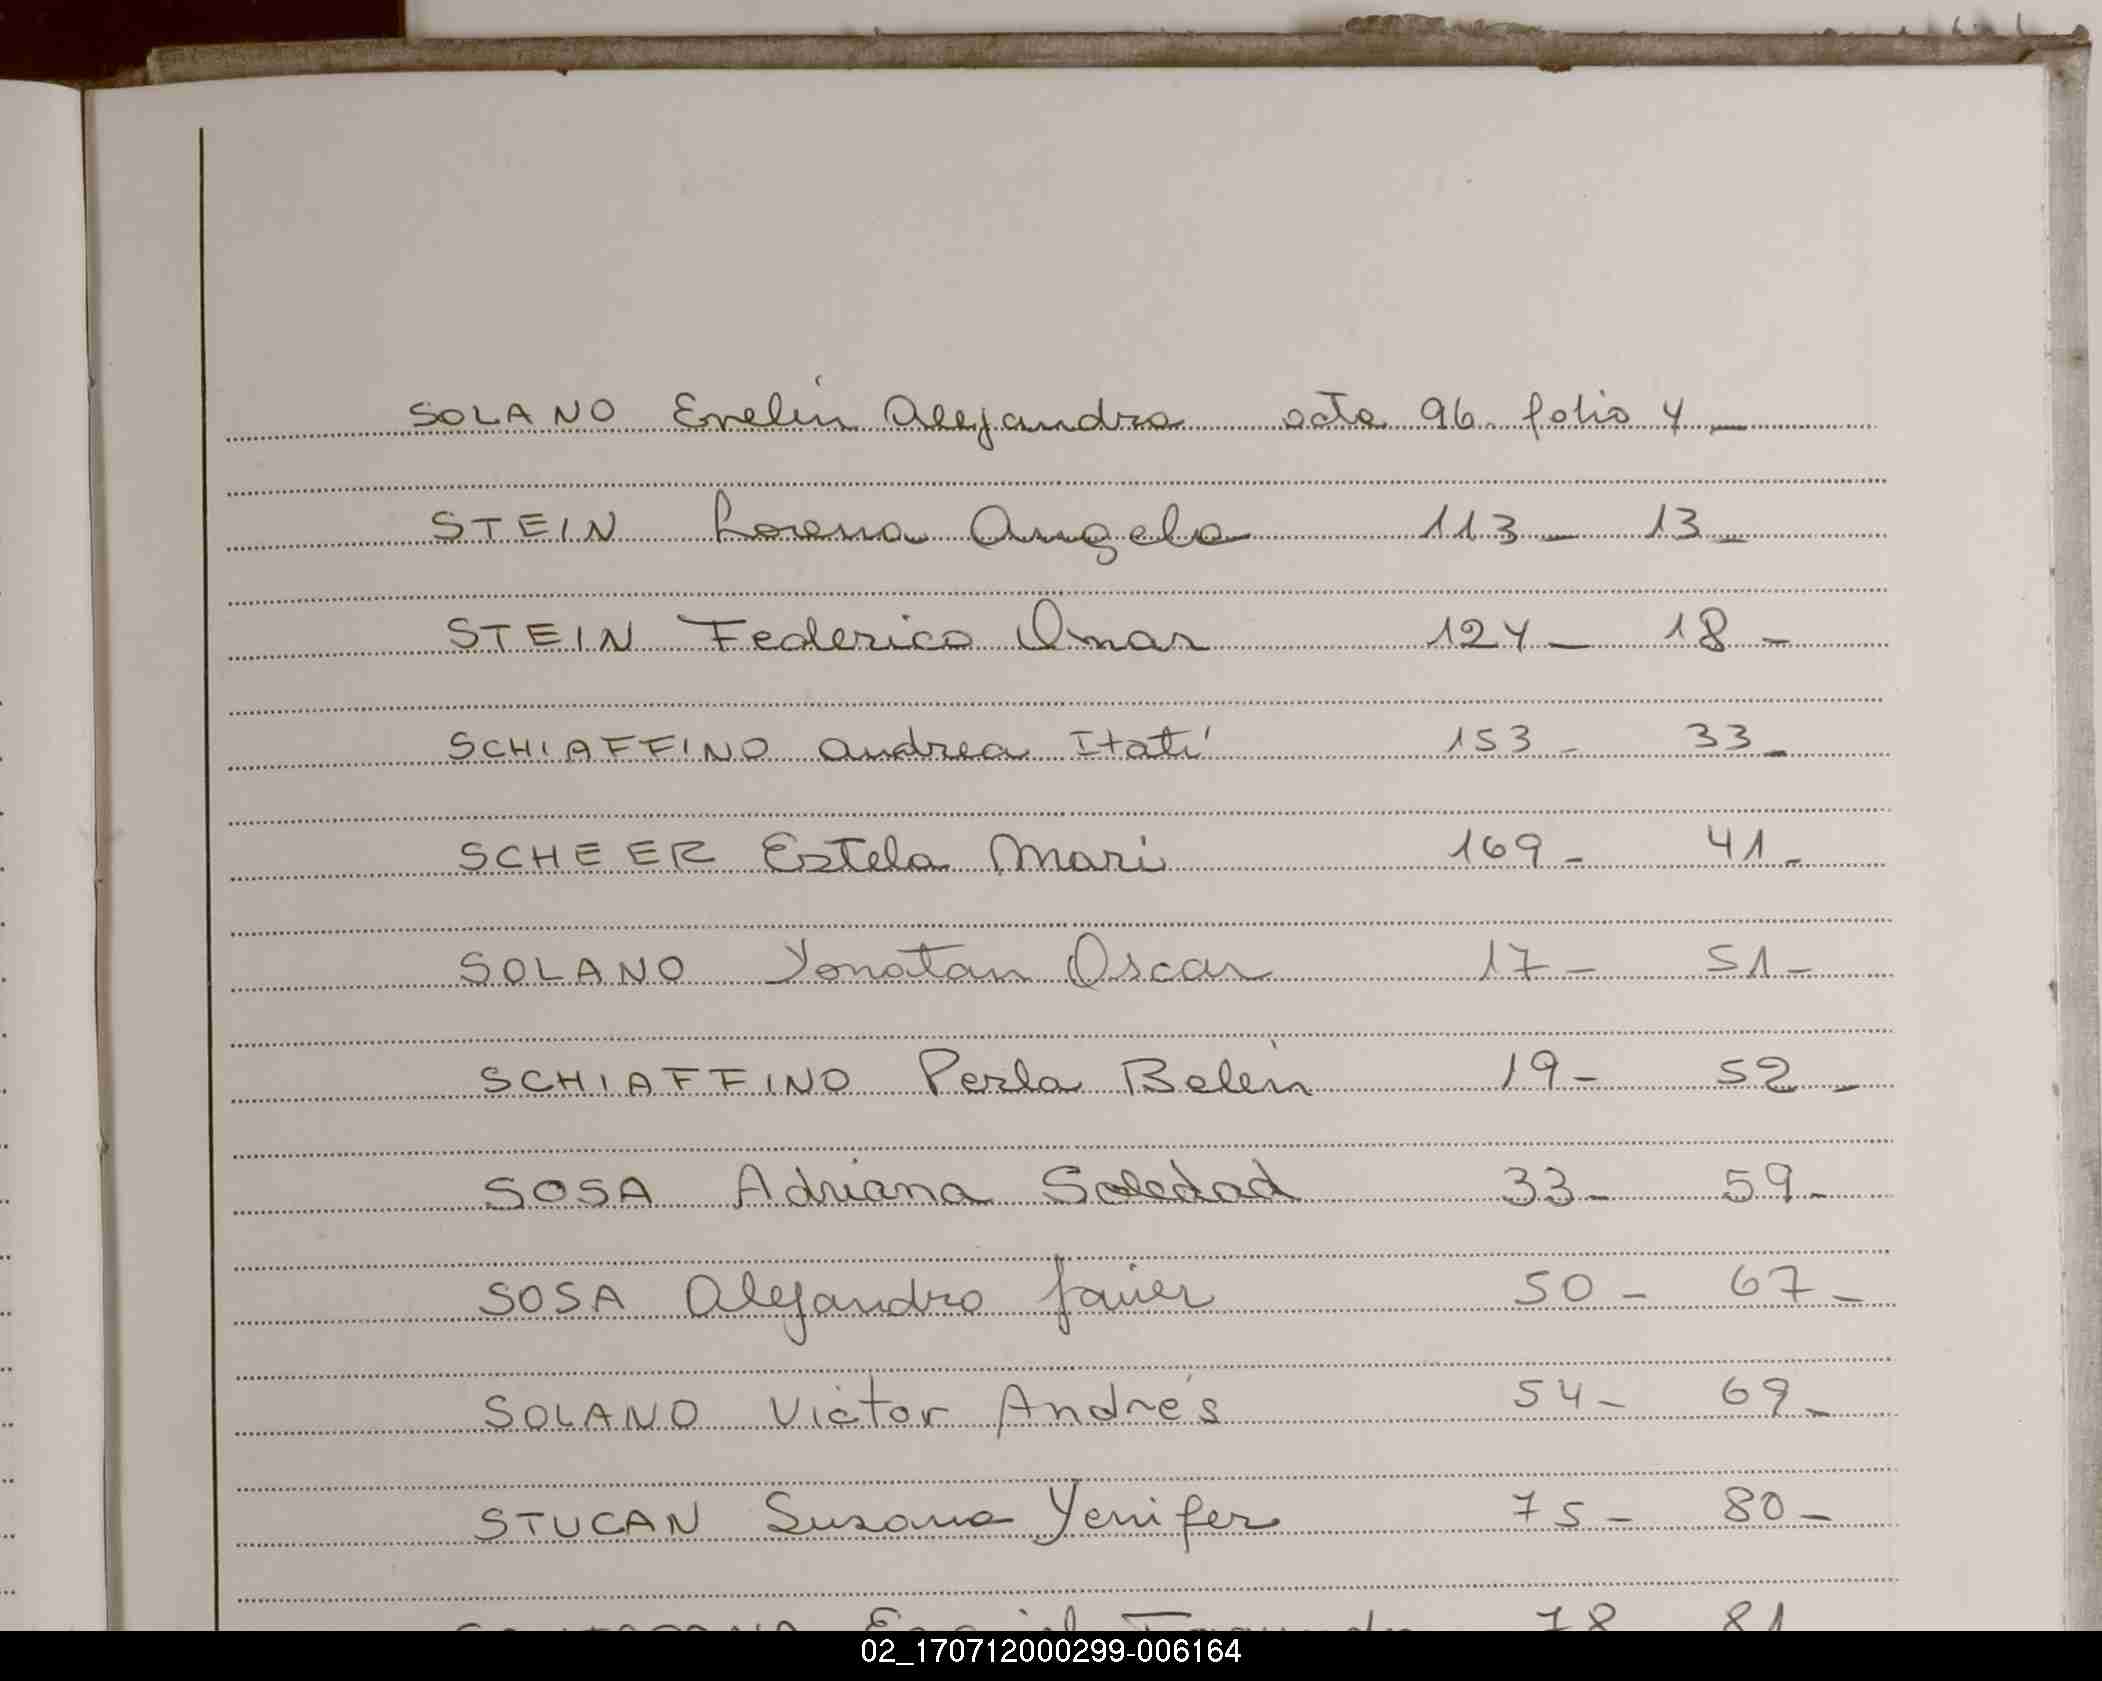 SOLANO Evelin Alejandra acta 96. folio 4 _
STEIN Lorena Angela 113 _ 13 _
STEIN Federico Omar 124 _ 18 _
SCHIAFFINO Andrea Itatí 153 _ 33 _
SCHEER Estela Mari 169 _ 41 _
SOLANO Yonatan Oscar 17 _ 51 _
SCHIAFFINO Perla Belén 19 _ 52 _
SOSA Adriana Soledad 33 _ 59 _
SOSA Alejandro Javier 50 _ 67 _
SOLANO Victor Andrés 54 _ 69 _
STUCAN Susana Yenifer 75 _ 80 _
78 81
02_170712000299-006164